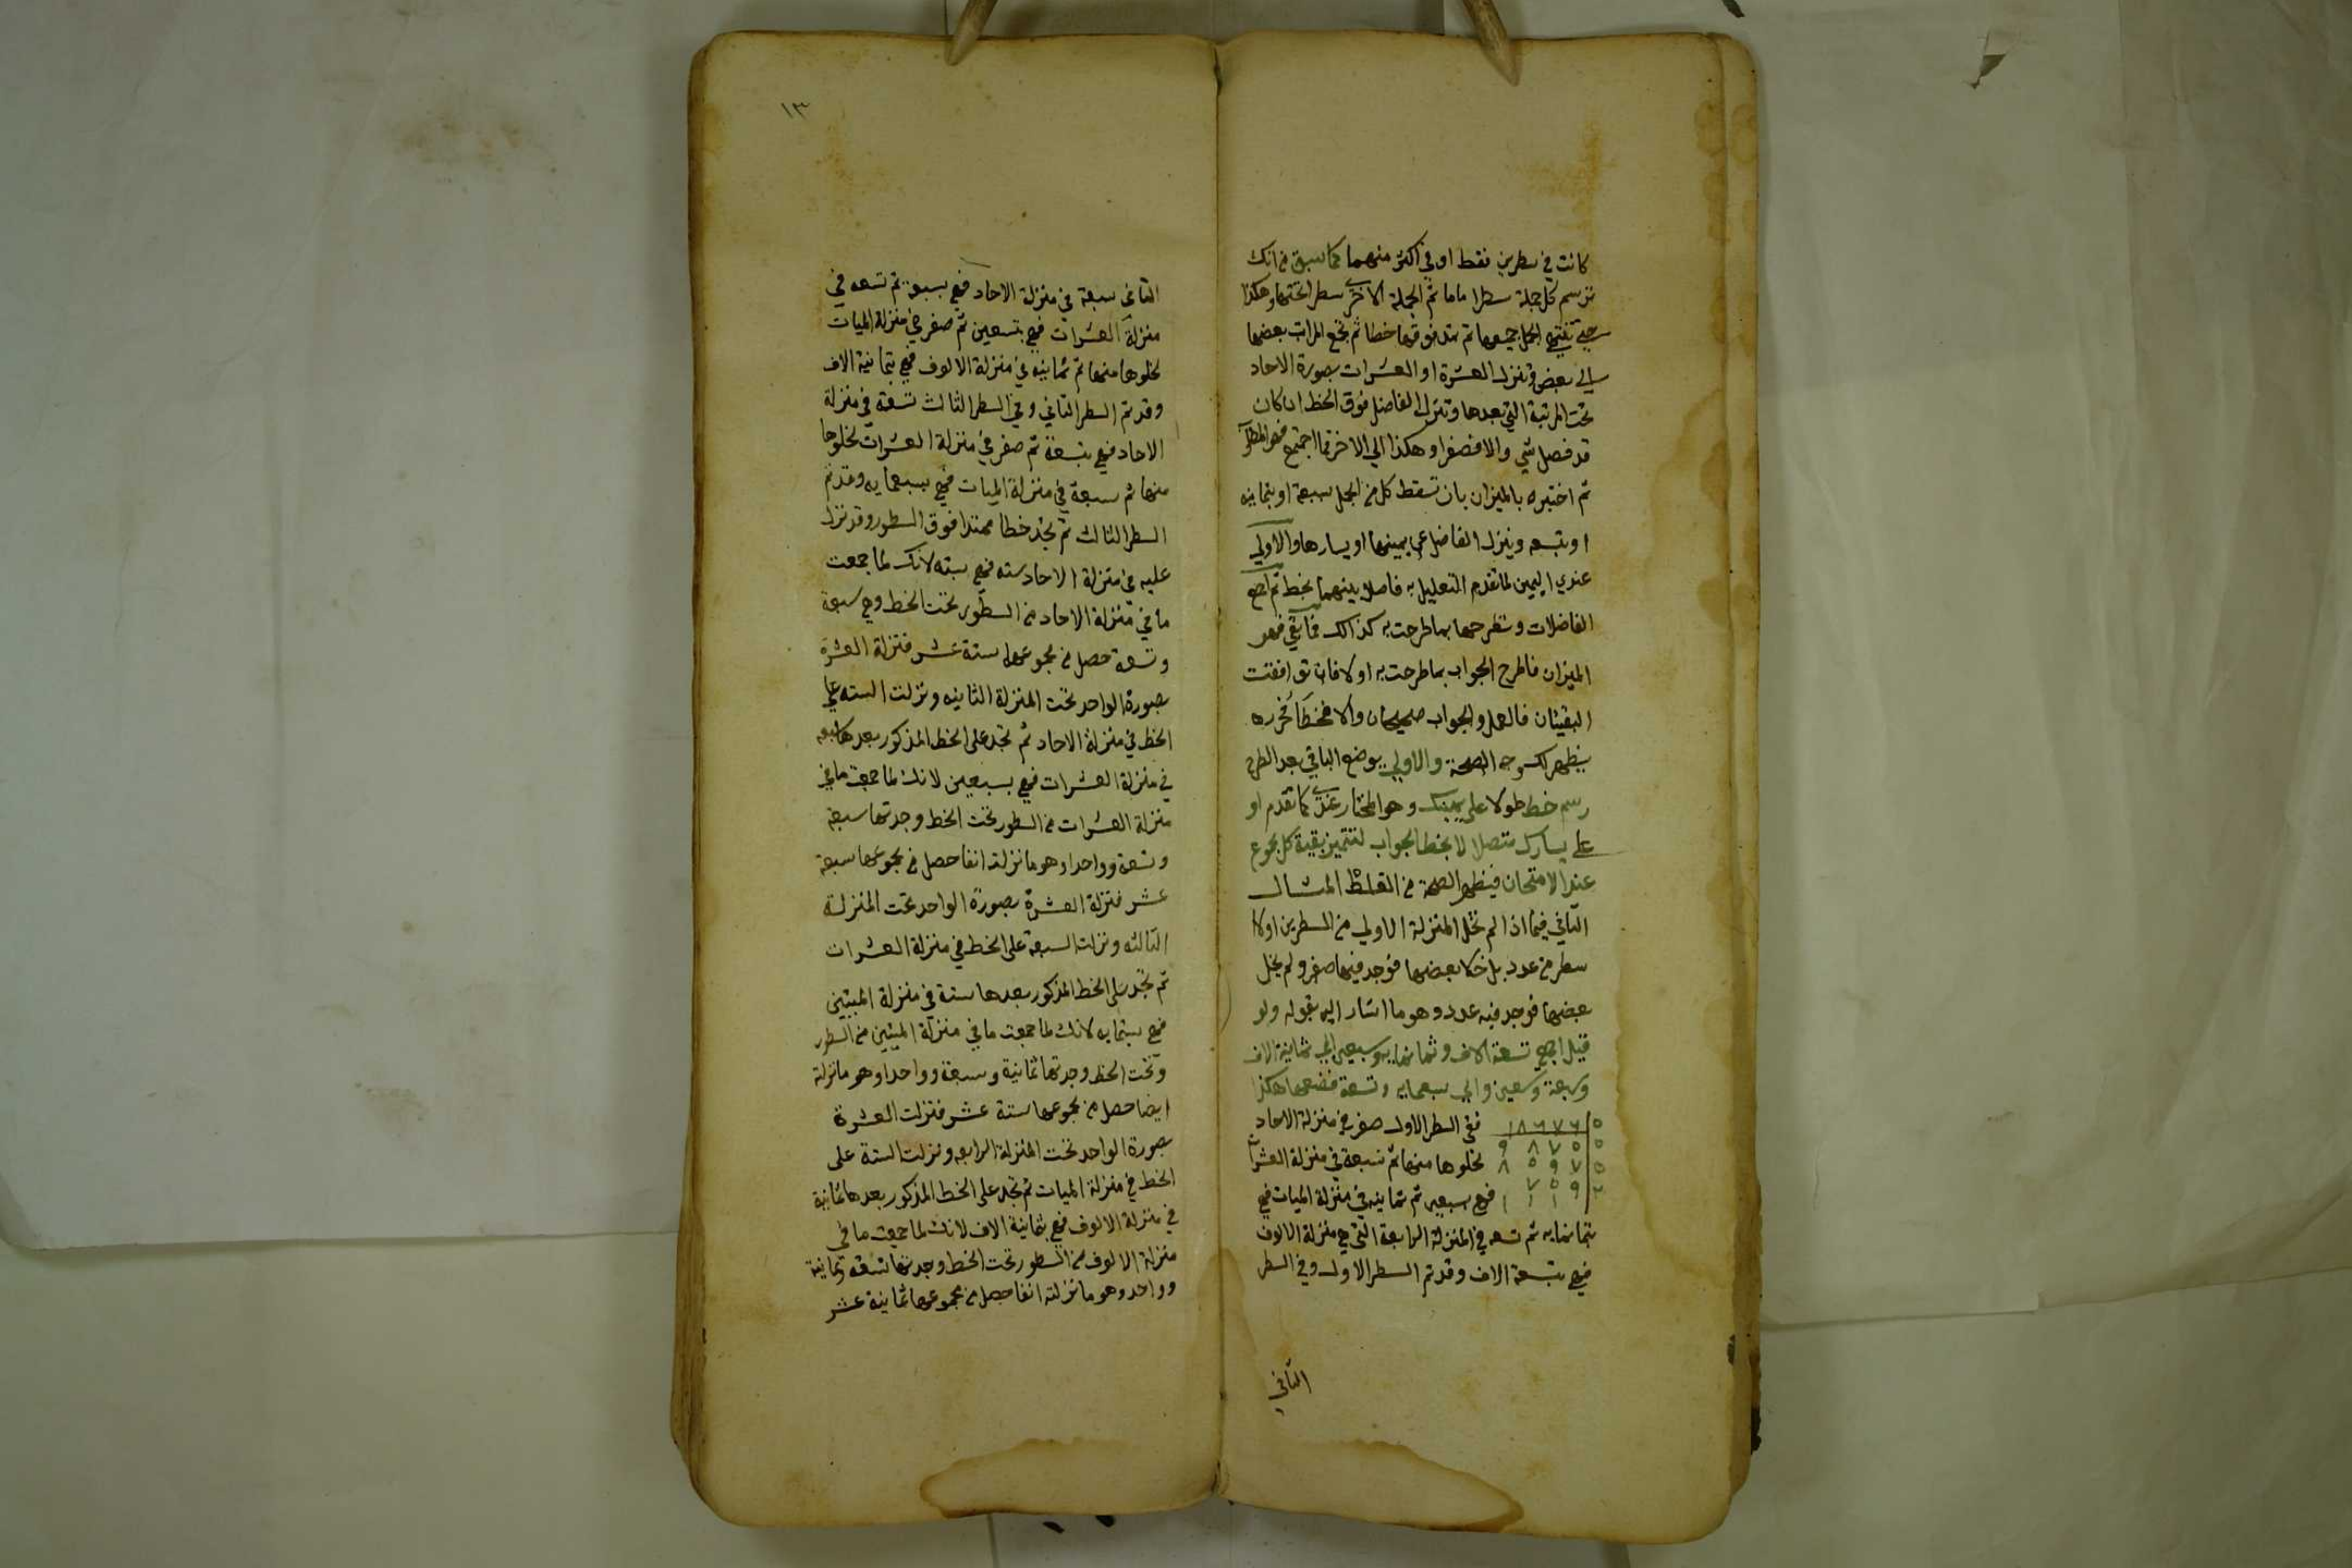 كانت في سطرين فقط او في اكثر منهما كما سبق من انك
ترسم كل جملة سطرا ماما ثم الجملة الاخرى سطرا تحتها وهكذا
حتى تنتهي الجمل جميعها ثم تمد فوقها خطا ثم تجمع المرات بعضها
الى بعض وتنزل العشرة او العشرات بصورة الاحاد
تحت المرتبة التي بعدها وتنزل الفاضل فوق الخط ان كان
قد فضل شي والا فصفرا وهكذا الي الاخر فما اجتمع فهو المطلوب
ثم اختبره بالميزان بان تسقط كل من الجمل سبعة او بثمانيه
او بتسعه وينزل الفاضل عن يمينها او يسارها والاولي
عندي اليمين لما تقدم التعليل به فاصلا بينهما بخط ثم اجمع
الفاضلات وتطرحها بما طرحت به كذالك فما بقي فهو
الميزان فاطرح الجواب بما طرحت به اولا فان توافقت
البقيتان فالعمل والجواب صحيحان والا فخطأ فحرره
يظهر لك وجه الصحة والاولي يوضع الباقي بعد الطرح
رسم خط طولا على يمينك وهو المختار عندي كما تقدم او
على يسارك متصلا لا بخط الجواب لتتميز بقية كل مجموع
عند الامتحان فيظهر الصحة من الغلط المثال
الثاني فيما اذا لم تخل المنزلة الاولي من السطرين اولا
سطر من عدد بل خلا بعضها فوجد فيها صفر ولم يخل
بعضها فوجد فيه عدد وهو ما اشار اليه بقوله ولو
قيل اجمع تسعة الاف وثمانمايه وسبعين الي ثمانية الاف
وسبعة وتسعين والي سبعمايه وتسعة فضعها هكذا
ففي السطر الاول صفر في منزلة الاحاد
لخلوها منها ثم سبعة في منزلة العشرات
فهي سبعين ثم ثمانيه في منزلة الميات فهي
بثمانمايه ثم تسعه في المنزلة الرابعة التي هي منزلة الالوف
فهي بتسعة الاف وقد تم السطر الاول وفي السطر
الثاني
١٣
الثاني سبعة في منزلة الاحاد فهي بسبعة ثم تسعه في
منزلة العشرات فهي بتسعين ثم صفر في منزلة الميات
لخلوها منها ثم ثمانيه في منزلة الالوف فهي بثمانية الاف
وقد تم السطر الثاني وفي السطر الثالث تسعة في منزلة
الاحاد فهي بتسعة ثم صفر في منزلة العشرات لخلوها
منها ثم سبعة في منزلة الميات فهي بسبعمايه وقد تم
السطر الثالث ثم تجد خطا ممتدا فوق السطور وقد نزل
عليه في منزلة الاحاد سته فهي بسته لانك لما جمعت
ما في منزلة الاحاد من السطور تحت الخط وهي سبعة
وتسعة حصل من مجموعها ستة عشر فنزلة العشرة
بصورة الواحد تحت المنزلة الثانيه ونزلت السته على
الخط في منزلة الاحاد ثم تجد على الخط المذكور بعدها سبعه
في منزلة العشرات فهي بسبعين لانك لما جمعت ما في
منزلة العشرات من السطور تحت الخط وجدتها سبعة
وتسعة وواحدا وهو ما نزلته انفا حصل من مجموعها سبعة
عشر فنزلة العشرة بصورة الواحد تحت المنزلة
الثالثه ونزلت السبعة على الخط في منزلة العشرات
ثم تجد على الخط المذكور بعدها ستة في منزلة الميتين
فهي بستمايه لانك لما جمعت ما في منزلة الميئين من السطور
وتحت الخط وجدتها ثمانية وسبعة وواحدا وهو ما نزلته
ايضا حصل من مجموعها ستة عشر فنزلت العشرة
بصورة الواحد تحت المنزلة الرابعه ونزلت الستة على
الخط في منزلة الميات ثم تجد على الخط المذكور بعدها ثمانية
في منزلة الالوف فهي بثمانية الاف لانك لما جمعت ما في
منزلة الالوف من السطور تحت الخط وجدتها تسعة وثمانية
وواحد وهو ما نزلته انفا حصل من مجموعها ثمانية عشر